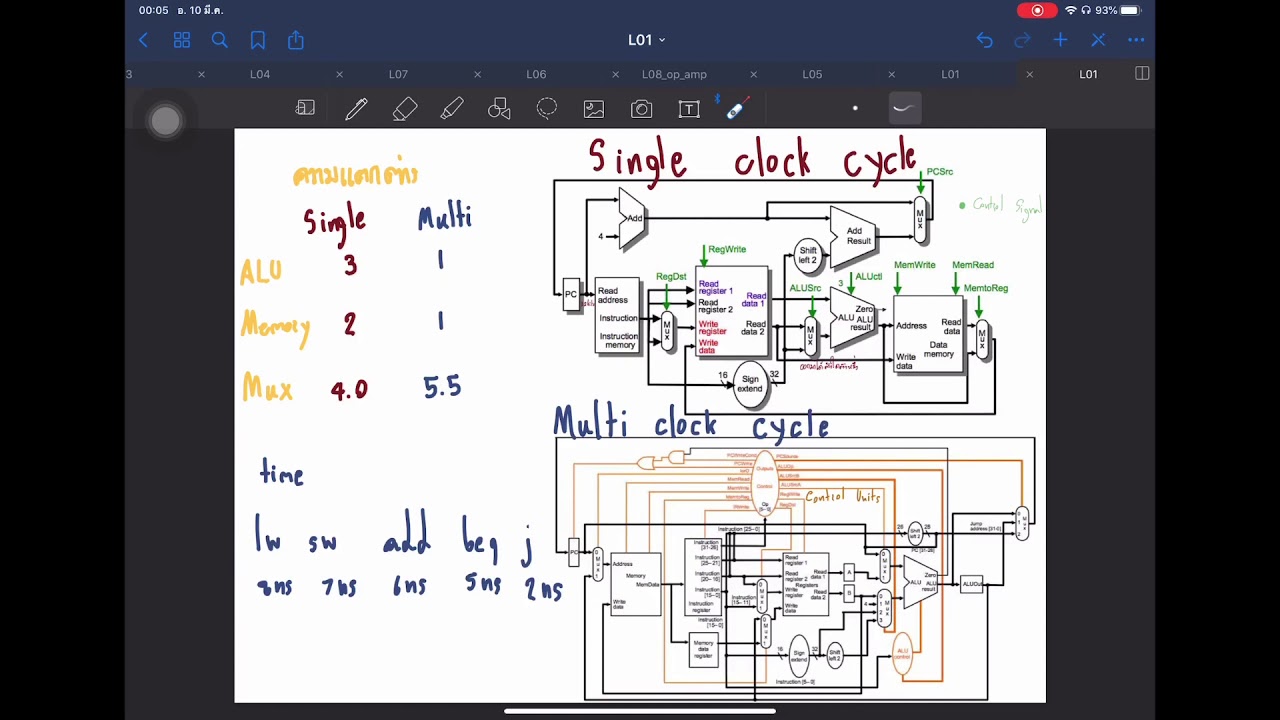 00:05 อ. 10 มี.ค.
93%
L01
3 L04 L07 L06 L08_op_amp L05 L01 L01
ความแตกต่าง
Single Multi
ALU 3 1
Memory 2 1
Mux 4.0 5.5
time
lw sw add beq j
8ns 7ns 6ns 5ns 2ns
Single clock cycle
PCSrc
Control Signal
Add
4
Add
Result
Mux
Shift
left 2
RegWrite
RegDst
PC
Read
address
Instruction
Instruction
memory
Mux
Read
register 1
Read
register 2
Write
register
Write
data
Read
data 1
Read
data 2
16
Sign
extend
32
ALUSrc
Mux
3
ALUctl
Zero
ALU
ALU
result
MemWrite
MemRead
MemtoReg
Address
Read
data
Data
memory
Write
data
Mux
Multi clock cycle
PCWriteCond
PCWrite
IorD
MemRead
MemWrite
MemtoReg
IRWrite
Outputs
Control
Op
[5–0]
PCSource
ALUOp
ALUSrcB
ALUSrcA
RegWrite
RegDst
Control Units
PC
0
Mux
1
Address
Memory
MemData
Write
data
Instruction [25–0]
Instruction
[31-26]
Instruction
[25–21]
Instruction
[20–16]
Instruction
[15–0]
Instruction
register
Instruction
[15–0]
Memory
data
register
Instruction
[15–11]
0
Mux
1
0
Mux
1
Read
register 1
Read
register 2
Registers
Write
register
Write
data
Read
data 1
Read
data 2
A
B
16
Sign
extend
32
Shift
left 2
Instruction [5–0]
0
Mux
1
4
0
1
Mux
2
3
26
Shift
left 2
28
Jump
address [31-0]
PC [31-28]
Zero
ALU
ALU
result
ALUOut
ALU
control
0
1
Mux
2